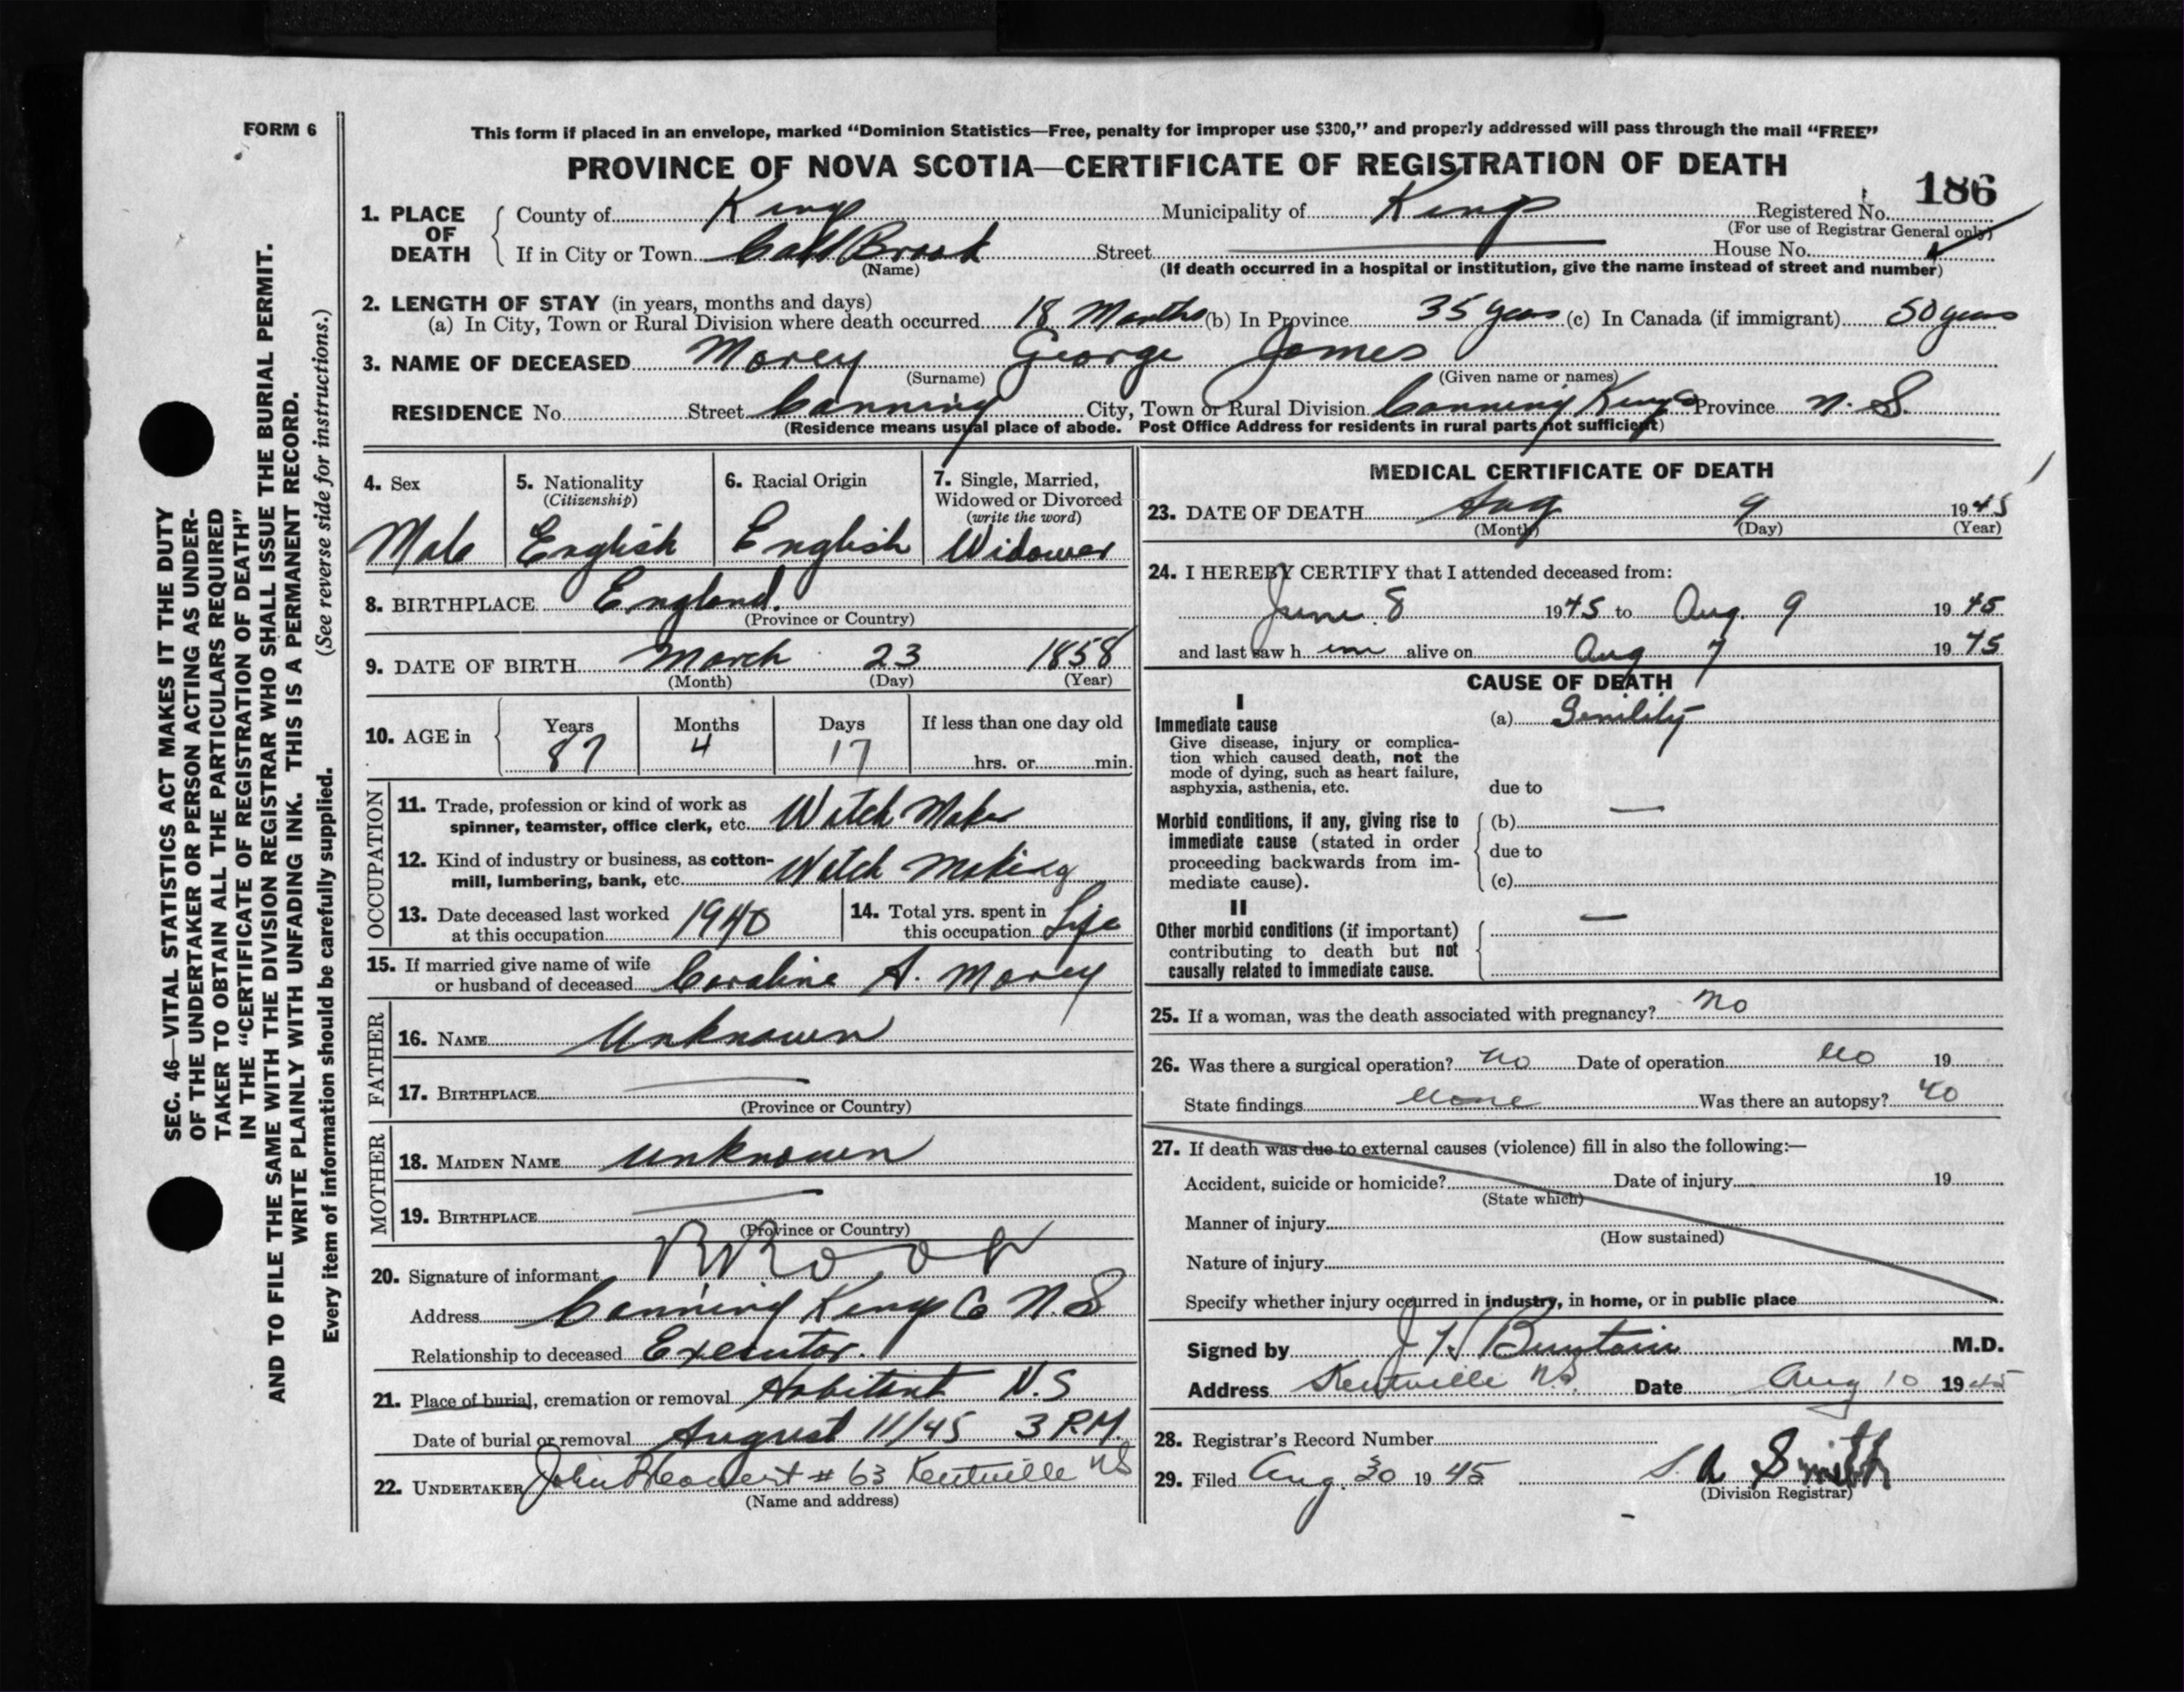 FORM 6
This form if placed in an envelope, marked "Dominion Statistics—Free, penalty for improper use $300," and properly addressed will pass through the mail "FREE"
PROVINCE OF NOVA SCOTIA—CERTIFICATE OF REGISTRATION OF DEATH
186
1. PLACE OF DEATH County of Kings Municipality of Kings Registered No.
(For use of Registrar General only)
If in City or Town Brook Street House No.
(Name) (If death occurred in a hospital or institution, give the name instead of street and number)
2. LENGTH OF STAY (in years, months and days)
(a) In City, Town or Rural Division where death occurred 18 Months (b) In Province 35 years (c) In Canada (if immigrant) 50 years
3. NAME OF DECEASED Morey George James
(Surname) (Given name or names)
RESIDENCE No. Street Canning City, Town or Rural Division Canning Kings Province N. S.
(Residence means usual place of abode. Post Office Address for residents in rural parts not sufficient)
4. Sex 5. Nationality 6. Racial Origin 7. Single, Married,
(Citizenship) Widowed or Divorced
(write the word)
Male English English Widower
8. BIRTHPLACE England.
(Province or Country)
9. DATE OF BIRTH March 23 1858
(Month) (Day) (Year)
10. AGE in Years Months Days If less than one day old
87 4 17 hrs. or min.
OCCUPATION
11. Trade, profession or kind of work as
spinner, teamster, office clerk, etc. Watch Maker
12. Kind of industry or business, as cotton-
mill, lumbering, bank, etc. Watch Making
13. Date deceased last worked 14. Total yrs. spent in
at this occupation 1940 this occupation Life
15. If married give name of wife
or husband of deceased Caroline A. Morey
FATHER
16. NAME Unknown
17. BIRTHPLACE
(Province or Country)
MOTHER
18. MAIDEN NAME unknown
19. BIRTHPLACE
(Province or Country)
20. Signature of informant
Address Canning Kings Co N.S
Relationship to deceased Executor.
21. Place of burial, cremation or removal Habitant N.S
Date of burial or removal August 11/45 3 P.M.
22. UNDERTAKER John # 63 Kentville NS
(Name and address)
MEDICAL CERTIFICATE OF DEATH
23. DATE OF DEATH Aug 9 1945
(Month) (Day) (Year)
24. I HEREBY CERTIFY that I attended deceased from:
June 8 1945 to Aug. 9 1945
and last saw h im alive on Aug 7 1945
CAUSE OF DEATH
I
Immediate cause (a) Senility
Give disease, injury or complica-
tion which caused death, not the
mode of dying, such as heart failure,
asphyxia, asthenia, etc. due to
Morbid conditions, if any, giving rise to (b) —
immediate cause (stated in order
proceeding backwards from im- due to
mediate cause). (c)
II
Other morbid conditions (if important) —
contributing to death but not
causally related to immediate cause.
25. If a woman, was the death associated with pregnancy? No
26. Was there a surgical operation? No Date of operation No 19
State findings None Was there an autopsy? No
27. If death was due to external causes (violence) fill in also the following:—
Accident, suicide or homicide? Date of injury 19
(State which)
Manner of injury
(How sustained)
Nature of injury
Specify whether injury occurred in industry, in home, or in public place
Signed by J H Buntain M.D.
Address Kentville N.S. Date Aug 10 1945
28. Registrar's Record Number
29. Filed Aug. 30 1945 S. A Smith
(Division Registrar)
SEC. 46—VITAL STATISTICS ACT MAKES IT THE DUTY
OF THE UNDERTAKER OR PERSON ACTING AS UNDER-
TAKER TO OBTAIN ALL THE PARTICULARS REQUIRED
IN THE "CERTIFICATE OF REGISTRATION OF DEATH"
AND TO FILE THE SAME WITH THE DIVISION REGISTRAR WHO SHALL ISSUE THE BURIAL PERMIT.
WRITE PLAINLY WITH UNFADING INK. THIS IS A PERMANENT RECORD.
Every item of information should be carefully supplied. (See reverse side for instructions.)